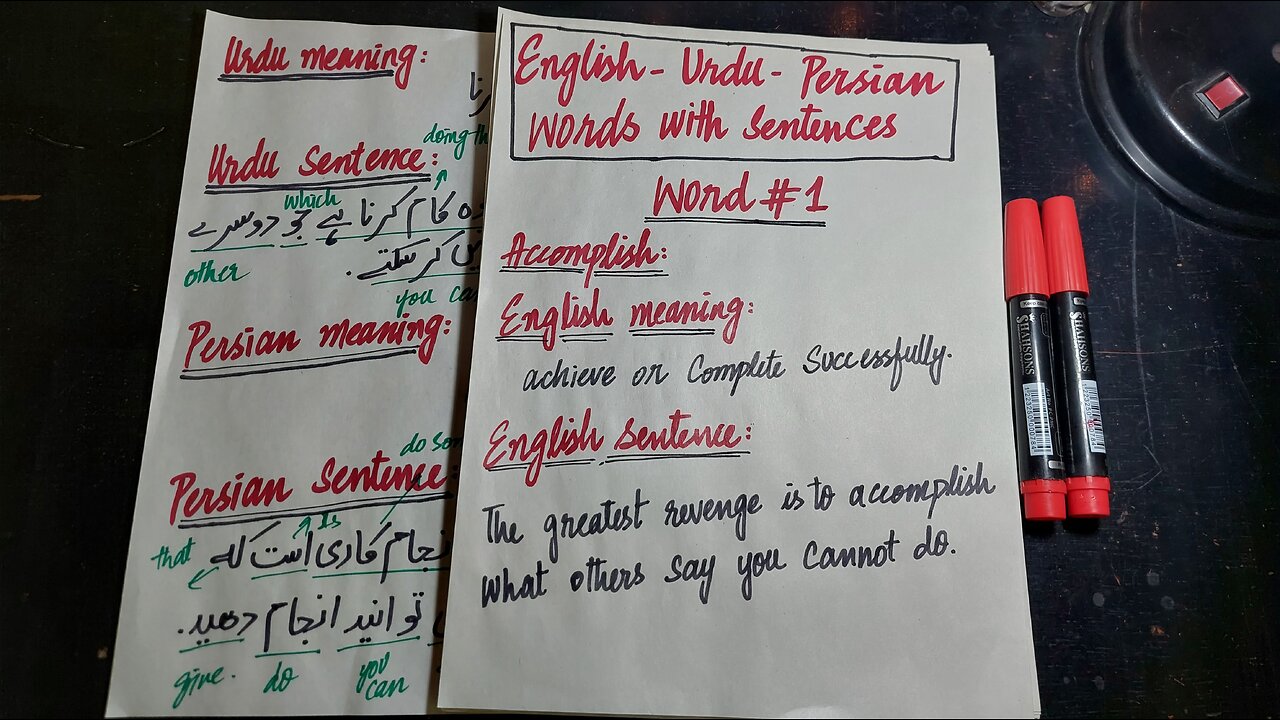 English - Urdu - Persian
Words with Sentences
Word #1
Accomplish:
English meaning:
achieve or Complete Successfully.
English sentence:
The greatest revenge is to accomplish
What others say you cannot do.
Urdu meaning:
doing
Urdu Sentence:
which
کام کرنا ہے جو دوسرے
other
کر سکتے.
you
Persian meaning:
do
Persian Sentence:
Is
that
کاری است که
توانید انجام دهید.
give. do you
can
SHAHSONS
SHAHSONS